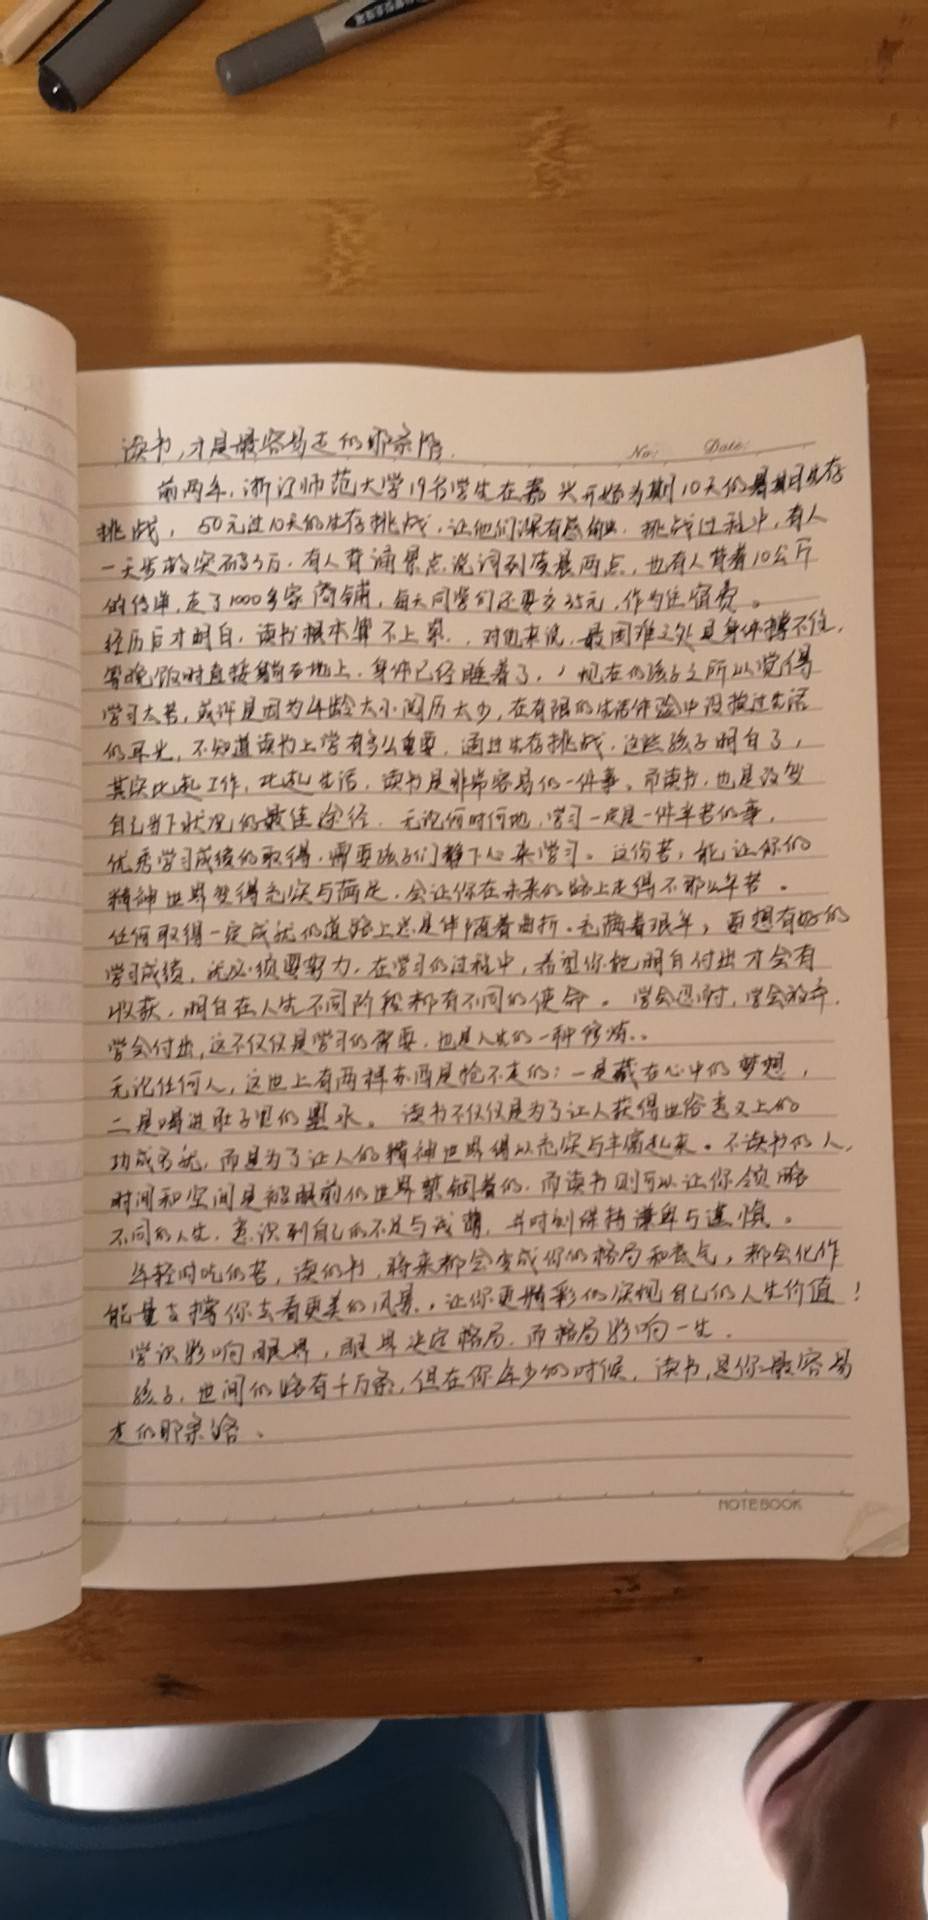 读书,才是最容易走的那条路.
No: Date:
前两年,浙江师范大学19名学生在嘉兴开始为期10天的暑期生存
挑战, 50元过10天的生存挑战,让他们深有感触. 挑战过程中,有人
一天步数突破3万,有人背诵景点说词到凌晨两点,也有人背着10公斤
的传单,走了1000多家商铺,每天同学们还要交35元,作为住宿费。
经历后才明白,读书根本算不上累.,对他来说,最困难之处是身体撑不住,
等晚饭时直接躺在地上,身体已经睡着了,,现在的孩子之所以觉得
学习太苦,或许是因为年龄太小阅历太少,在有限的生活体验中没挨过生活
的耳光,不知道读书上学有多么重要.通过生存挑战,这些孩子明白了,
其实比起工作,比起生活,读书是非常容易的一件事。而读书,也是改变
自己当下状况的最佳途径.无论何时何地,学习一定是一件辛苦的事,
优秀学习成绩的取得,需要孩子们静下心来学习。这份苦,能让你的
精神世界变得充实与满足,会让你在未来的路上走得不那么辛苦。
任何取得一定成就的道路上总是伴随着曲折.充满着艰辛,要想有好的
学习成绩,就必须要努力,在学习的过程中,希望你能明白付出才会有
收获,明白在人生不同阶段都有不同的使命。学会适时,学会放弃,
学会付出,这不仅仅是学习的需要,也是人生的一种修炼..
无论任何人,这世上有两样东西是抢不走的:一是藏在心中的梦想,
二是喝进肚子里的墨水。读书不仅仅是为了让人获得世俗意义上的
功成名就,而是为了让人的精神世界得以充实与丰富起来。不读书的人,
时间和空间是被眼前的世界禁锢着的,而读书则可以让你领略
不同的人生,意识到自己的不足与浅薄,并时刻保持谦卑与谨慎。
年轻时吃的苦,读的书,将来都会变成你的格局和底气,都会化作
能量支撑你去看更美的风景.,让你更精彩的实现自己的人生价值!
学识影响眼界,眼界决定格局.而格局影响一生.
孩子,世间的路有千万条,但在你年少的时候,读书,是你最容易
走的那条路、
NOTEBOOK